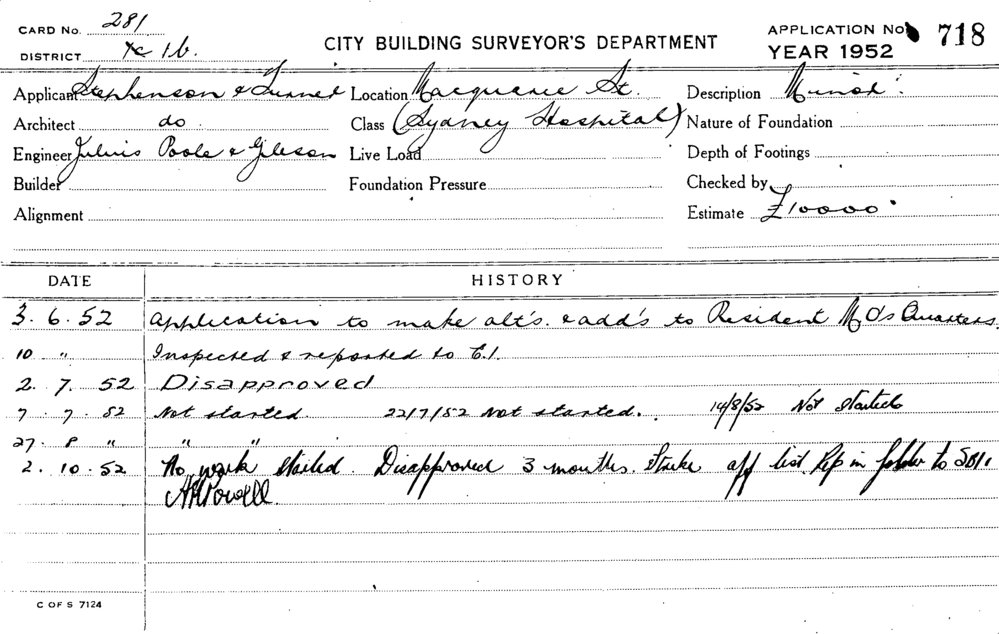 CARD No. 281
DISTRICT 1b.
CITY BUILDING SURVEYOR'S DEPARTMENT
APPLICATION No 718
YEAR 1952
Applicant Stephenson & Turner Location Macquarie St. Description Minor.
Architect do. Class (Sydney Hospital) Nature of Foundation
Engineer Julius Poole & Gibson Live Load Depth of Footings
Builder Foundation Pressure Checked by
Alignment Estimate £10000.
DATE HISTORY
3.6.52 Application to make alt's. & add's to Resident M.O's Quarters.
10 " Inspected & reported to C.I.
2.7.52 Disapproved
7.7.52 Not started 22/7/52 Not started. 14/8/52 Not started
27.8 " " "
2.10.52 No work started. Disapproved 3 months. Strike off list. Rep in folder to
A Powell
C OF S 7124